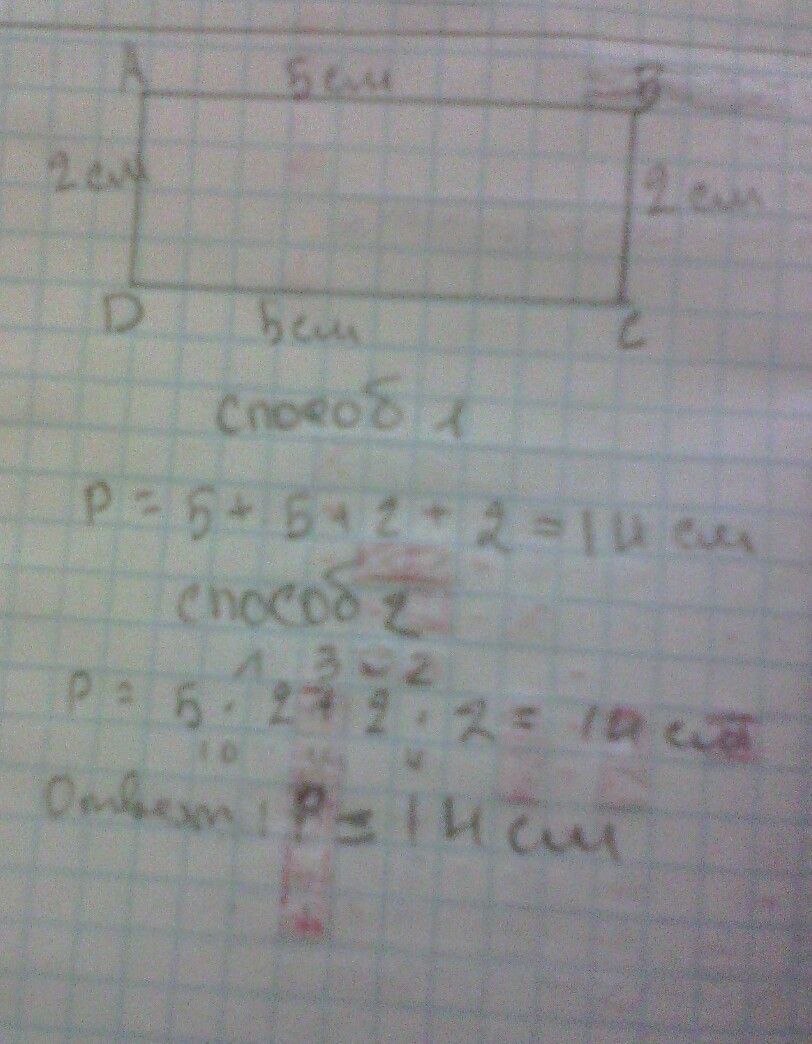 A 5 см В
2 см 2 см
D 5 см С
способ 1
P = 5 + 5 + 2 + 2 = 14 см
способ 2
1 3 2
P = 5 · 2 + 2 · 2 = 14 см
10 4
Ответ: P = 14 см